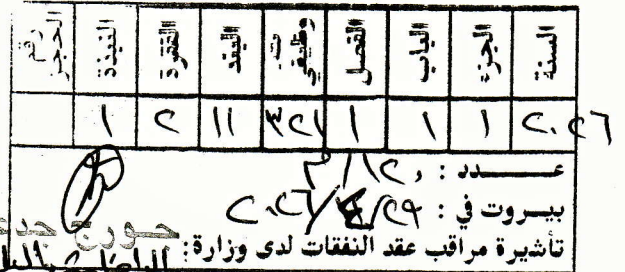 السنة الجزء الباب الفصل ت. وظيفي البند الفقرة النبذة رقم الحجز
٢٠٢٦ ١ ١ ١ ٣٢١ ١١ ٢ ١
عـــدد :
بيـروت في : ٢٠٢٦/٤/٢٩
تأشيرة مراقب عقد النفقات لدى وزارة :
جورج